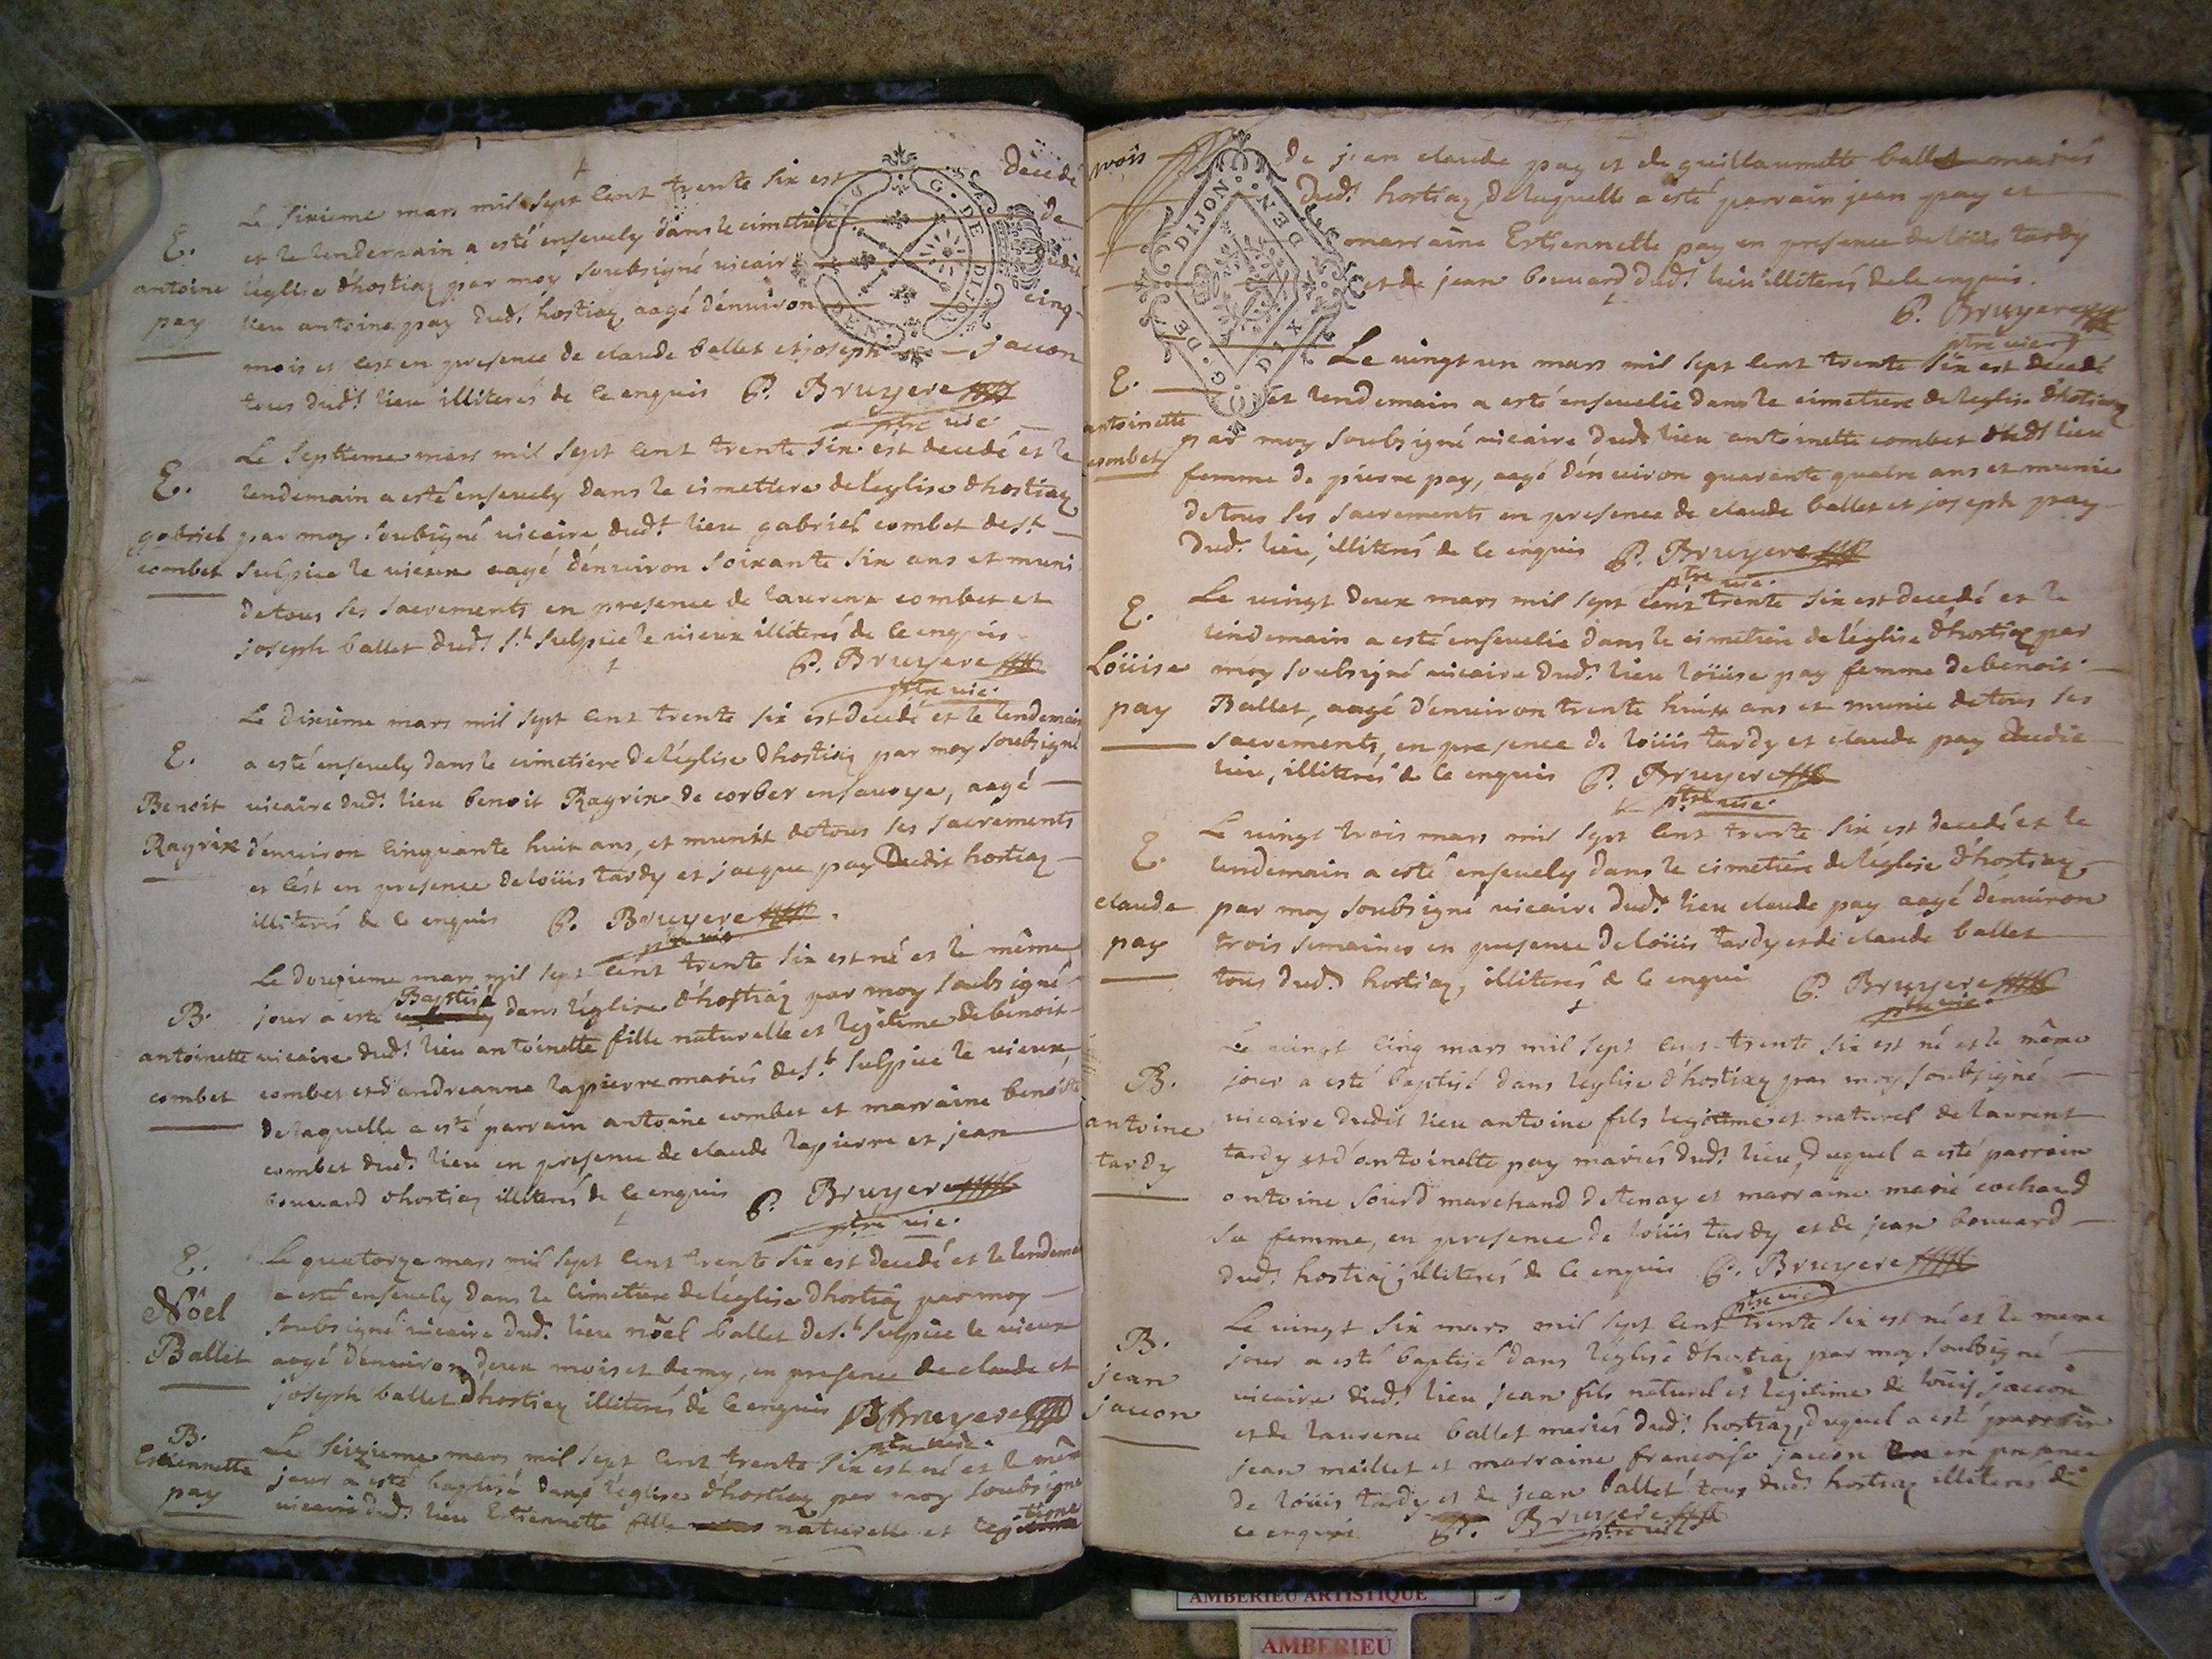 Le sixieme mars mil sept cent trente six est decedé
et le lendemain a esté ensevely dans le cimetiere de
E.
antoine
pay
l'église d'hostiaz par moy soubsigné vicaire dudit
lieu antoine pay dud.t hostiaz, aagé d'environ cinq
mois et c'est en presence de claude ballet et joseph jaccon
tous dud.t lieu illiterés de ce enquis P. Bruyere
ptre vic.
Le septieme mars mil sept cent trente six est decedé et le
E.
gabriel
combet
lendemain a esté ensevely dans le cimettiere de l'eglise d'hostiaz
par moy soubsigné vicaire dud.t lieu gabriel combet de s.t
sulpice le vieux aagé d'environ soixante six ans et muni
de tous ses sacrements en presence de laurent combet et
joseph ballet dud.t s.t sulpice le vieux illiterés de ce enquis
P. Bruyere
ptre vic.
Le dixième mars mil sept cent trente six est decedé et le lendemain
E.
Benoit
Ragrix
a esté ensevely dans le cimetiere de l'église d'hostiaz par moy soubsigné
vicaire dud.t lieu benoit Ragrix de corber en savoye, aagé
d'environ cinquante huit ans, et munit de tous ses sacrements
et c'est en presence de loüis tardy et jacque pay dudit hostiaz
illiterés de ce enquis P. Bruyere
ptre vic.
Le douzieme mars mil sept cent trente six est né et le même
B.
antoinette
combet
jour a esté Baptisé dans l'église d'hostiaz par moy soubsigné
vicaire dud.t lieu antoinette fille naturelle et legitime de benoit
combet et d'andreanne lapierre mariés de s.t sulpice le vieux,
de laquelle a esté parrain antoine combet et marraine benoiste
combet dud.t lieu en presence de claude lapierre et jean
bouvard d'hostiaz illiterés de ce enquis P. Bruyere
ptre vic.
Le quatorze mars mil sept cent trente six est decedé et le lendemain
E.
Nöel
Ballet
a esté ensevely dans le cimetiere de l'église d'hostiaz par moy
soubsigné vicaire dud.t lieu nöel ballet de s.t sulpice le vieux
aagé d'environ deux mois et demy, en presence de claude et
joseph ballet d'hostiaz illiterés de ce enquis P. Bruyere
ptre vic.
Le seizieme mars mil sept cent trente six est né et le même
B.
Estiennette
pay
jour a esté baptisé dans l'église d'hostiaz par moy soubsigné
vicaire dud.t lieu Estiennette fille naturelle et legitime
G. DE DIJON
G. DE DIJON
de jean claude pay et de guillaumette ballet mariés
dud.t hostiaz, de laquelle a esté parrain jean pay et
marraine Estiennette pay en presence de loüis tardy
et de jean bouvard dud.t lieu illiterés de ce enquis.
P. Bruyere
ptre vic.
Le vingt un mars mil sept cent trente six est decedé
E.
antoinette
combet
et lendemain a esté ensevelie dans le cimetiere de l'eglise d'hostiaz
par moy soubsigné vicaire dud.t lieu antoinette combet dud.t lieu
femme de pierre pay, aagé d'environ quarante quatre ans et munie
de tous ses sacrements en presence de claude ballet et joseph pay
dud.t lieu, illiterés de ce enquis P. Bruyere
ptre vic.
Le vingt deux mars mil sept cent trente six est decedé et le
E.
Loüise
pay
lendemain a esté ensevelie dans le cimetiere de l'église d'hostiaz par
moy soubsigné vicaire dud.t lieu loüise pay femme de benoit
Ballet, aagé d'environ trente huit ans et munie de tous ses
sacrements, en presence de loüis tardy et claude pay dudit
lieu, illiterés de ce enquis P. Bruyere
ptre vic.
Le vingt trois mars mil sept cent trente six est decedé et le
E.
claude
pay
lendemain a esté ensevely dans le cimetiere de l'église d'hostiaz
par moy soubsigné vicaire dud.t lieu claude pay aagé d'environ
trois semaines en presence de loüis tardy et de claude ballet
tous dud.t hostiaz, illiterés de ce enqui P. Bruyere
ptre vic.
Le vingt cinq mars mil sept cent trente six est né et le même
B.
antoine
tardy
jour a esté baptisé dans l'église d'hostiaz par moy soubsigné
vicaire dudit lieu antoine fils legitime et naturel de laurent
tardy et d'antoinette pay mariés dud.t lieu, duquel a esté parrain
antoine sourd marchand de tenay et marraine marie cochard
sa femme, en presence de loüis tardy et de jean bouvard
dud.t hostiaz, illiterés de ce enquis P. Bruyere
ptre vic.
Le vingt six mars mil sept cent trente six est né et le meme
B.
jean
jaccon
jour a esté baptisé dans l'église d'hostiaz par moy soubsigné
vicaire dud.t lieu jean fils naturel et legitime de loüis jaccon
et de laurence ballet mariés dud.t hostiaz, duquel a esté parrain
jean maillet et marraine françoise jaccon en presence
de loüis tardy et de jean ballet tous dud.t hostiaz illiterés de
ce enquis P. Bruyere
ptre vic.
AMBERIEU ARTISTIQUE
AMBERIEU